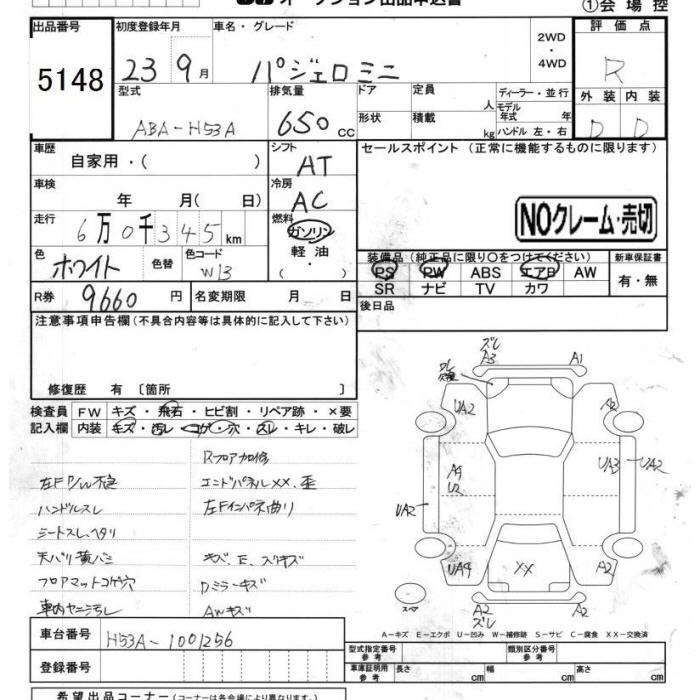 ①会場控
出品番号 初度登録年月 車名・グレード 評価点
5148 23 9月 パジェロミニ 2WD・4WD R
型式 排気量 ドア 定員 人 ディーラー・並行 外装 内装
ABA-H53A 650cc 形状 積載 kg モデル年式 年 ハンドル 左・右 D D
車歴 シフト セールスポイント (正常に機能するものに限ります)
自家用・( ) AT
車検 冷房
年 月( 日) AC
NOクレーム・売切
走行 燃料
6万0千345km ガソリン・軽油・
色 色替 色コード 装備品(純正品に限り○をつけてください) 新車保証書
ホワイト W13 PS PW ABS エアB AW 有・無
SR ナビ TV カワ
R券 9660円 名変期限 月 日 後日品
注意事項申告欄(不具合内容等は具体的に記入して下さい)
修復歴 有 [箇所 ]
検査員 FW キズ・飛石・ヒビ割・リペア跡・×要
記入欄 内装 キズ・汚レ・コゲ・穴・スレ・キレ・破レ
Rフロア加修
左F P/W不良 エンドパネルXX、歪
ハンドルスレ 左Fインパネ曲り
シートスレ、ヘタリ
天バリ黄バミ キズ、E、スリキズ
フロアマットコゲ穴 Dミラーキズ
車内ヤニ汚レ AWキズ
ズレ
A3 A1
UA2 A2
A4
U2
UA3 UA2
UA2
UA4 XX A2
スペア
A2 A2
ズレ
A-キズ E-エクボ U-凹み W-補修跡 S-サビ C-腐食 XX-交換済
車台番号 H53A-1001256
登録番号
型式指定番号 参考 類別区分番号 参考
車庫証明用 参考 長さ cm 幅 cm 高さ cm
希望出品コーナー(コーナーは各会場により異なります。)